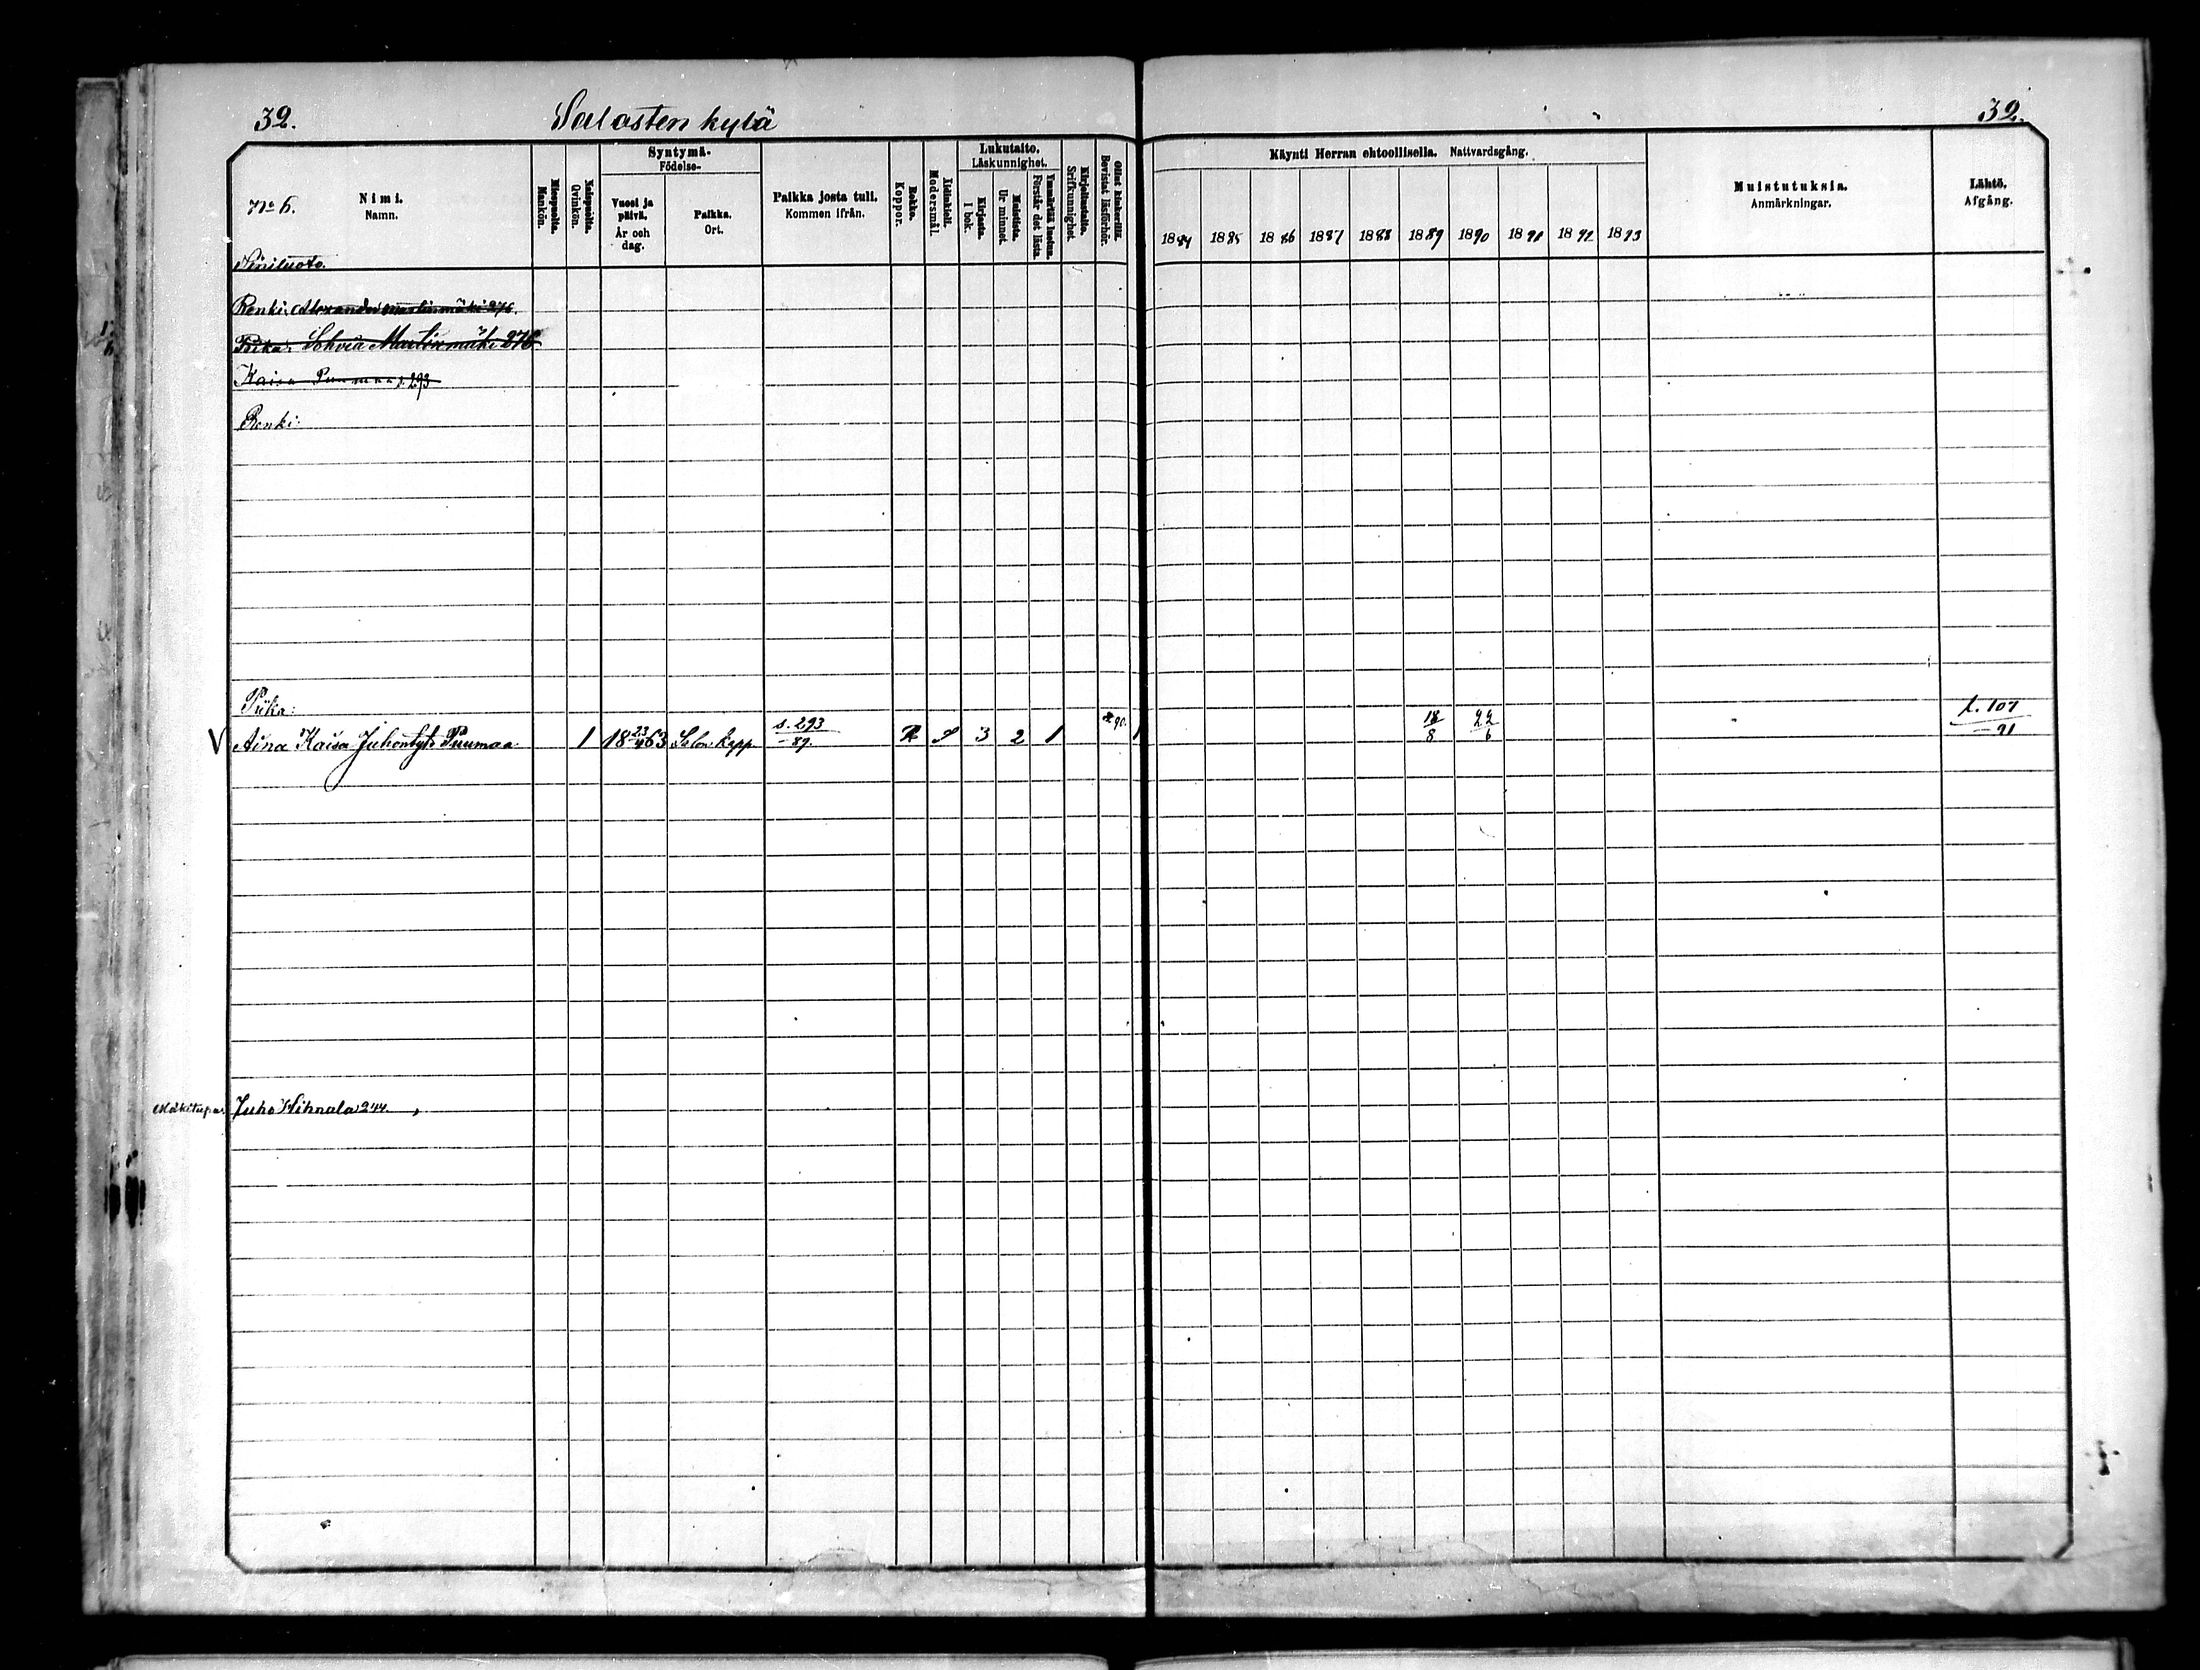 32.
Salosten kylä
32.
No 6.
Nimi.
Namn.
Miespuolia.
Mankön.
Naispuolia.
Qvinkön.
Syntymä-
Födelse-
Vuosi ja päivä.
År och dag.
Paikka.
Ort.
Paikka josta tuli.
Kommen ifrån.
Rokko.
Koppor.
Äidinkieli.
Modersmål.
Lukutaito.
Läskunnighet.
Kirjasta.
I bok.
Muistista.
Ur minnet.
Ymmärtää luetun.
Förstår det lästa.
Kirjoitustaito.
Srifkunnighet.
Ollut kinkerillä.
Bevistat läsförhör.
Käynti Herran ehtoollisella. Nattvardsgång.
1884 1885 1886 1887 1888 1889 1890 1891 1892 1893
Muistutuksia.
Anmärkningar.
Lähtö.
Afgång.
Renki: Alexander Martinmäki 276.
Piika: Sohvia Martinmäki 276
Kaisa Puumaa s. 293
Renki:
Piika:
V Aina Kaisa Juhontyt. Puumaa 1 18 23/4 63 Salon kapp. s. 293/-89. R S 3 2 1 90. 1 18/8 22/6 l. 107/-91
Mäkitupa. Juho Hihnala 244.